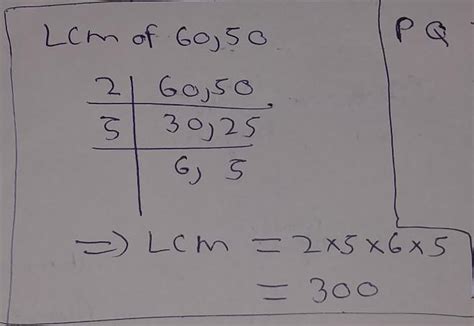 LCM of 60,50
PQ
2 | 60,50
5 | 30,25
6, 5
=> LCM = 2×5×6×5
= 300